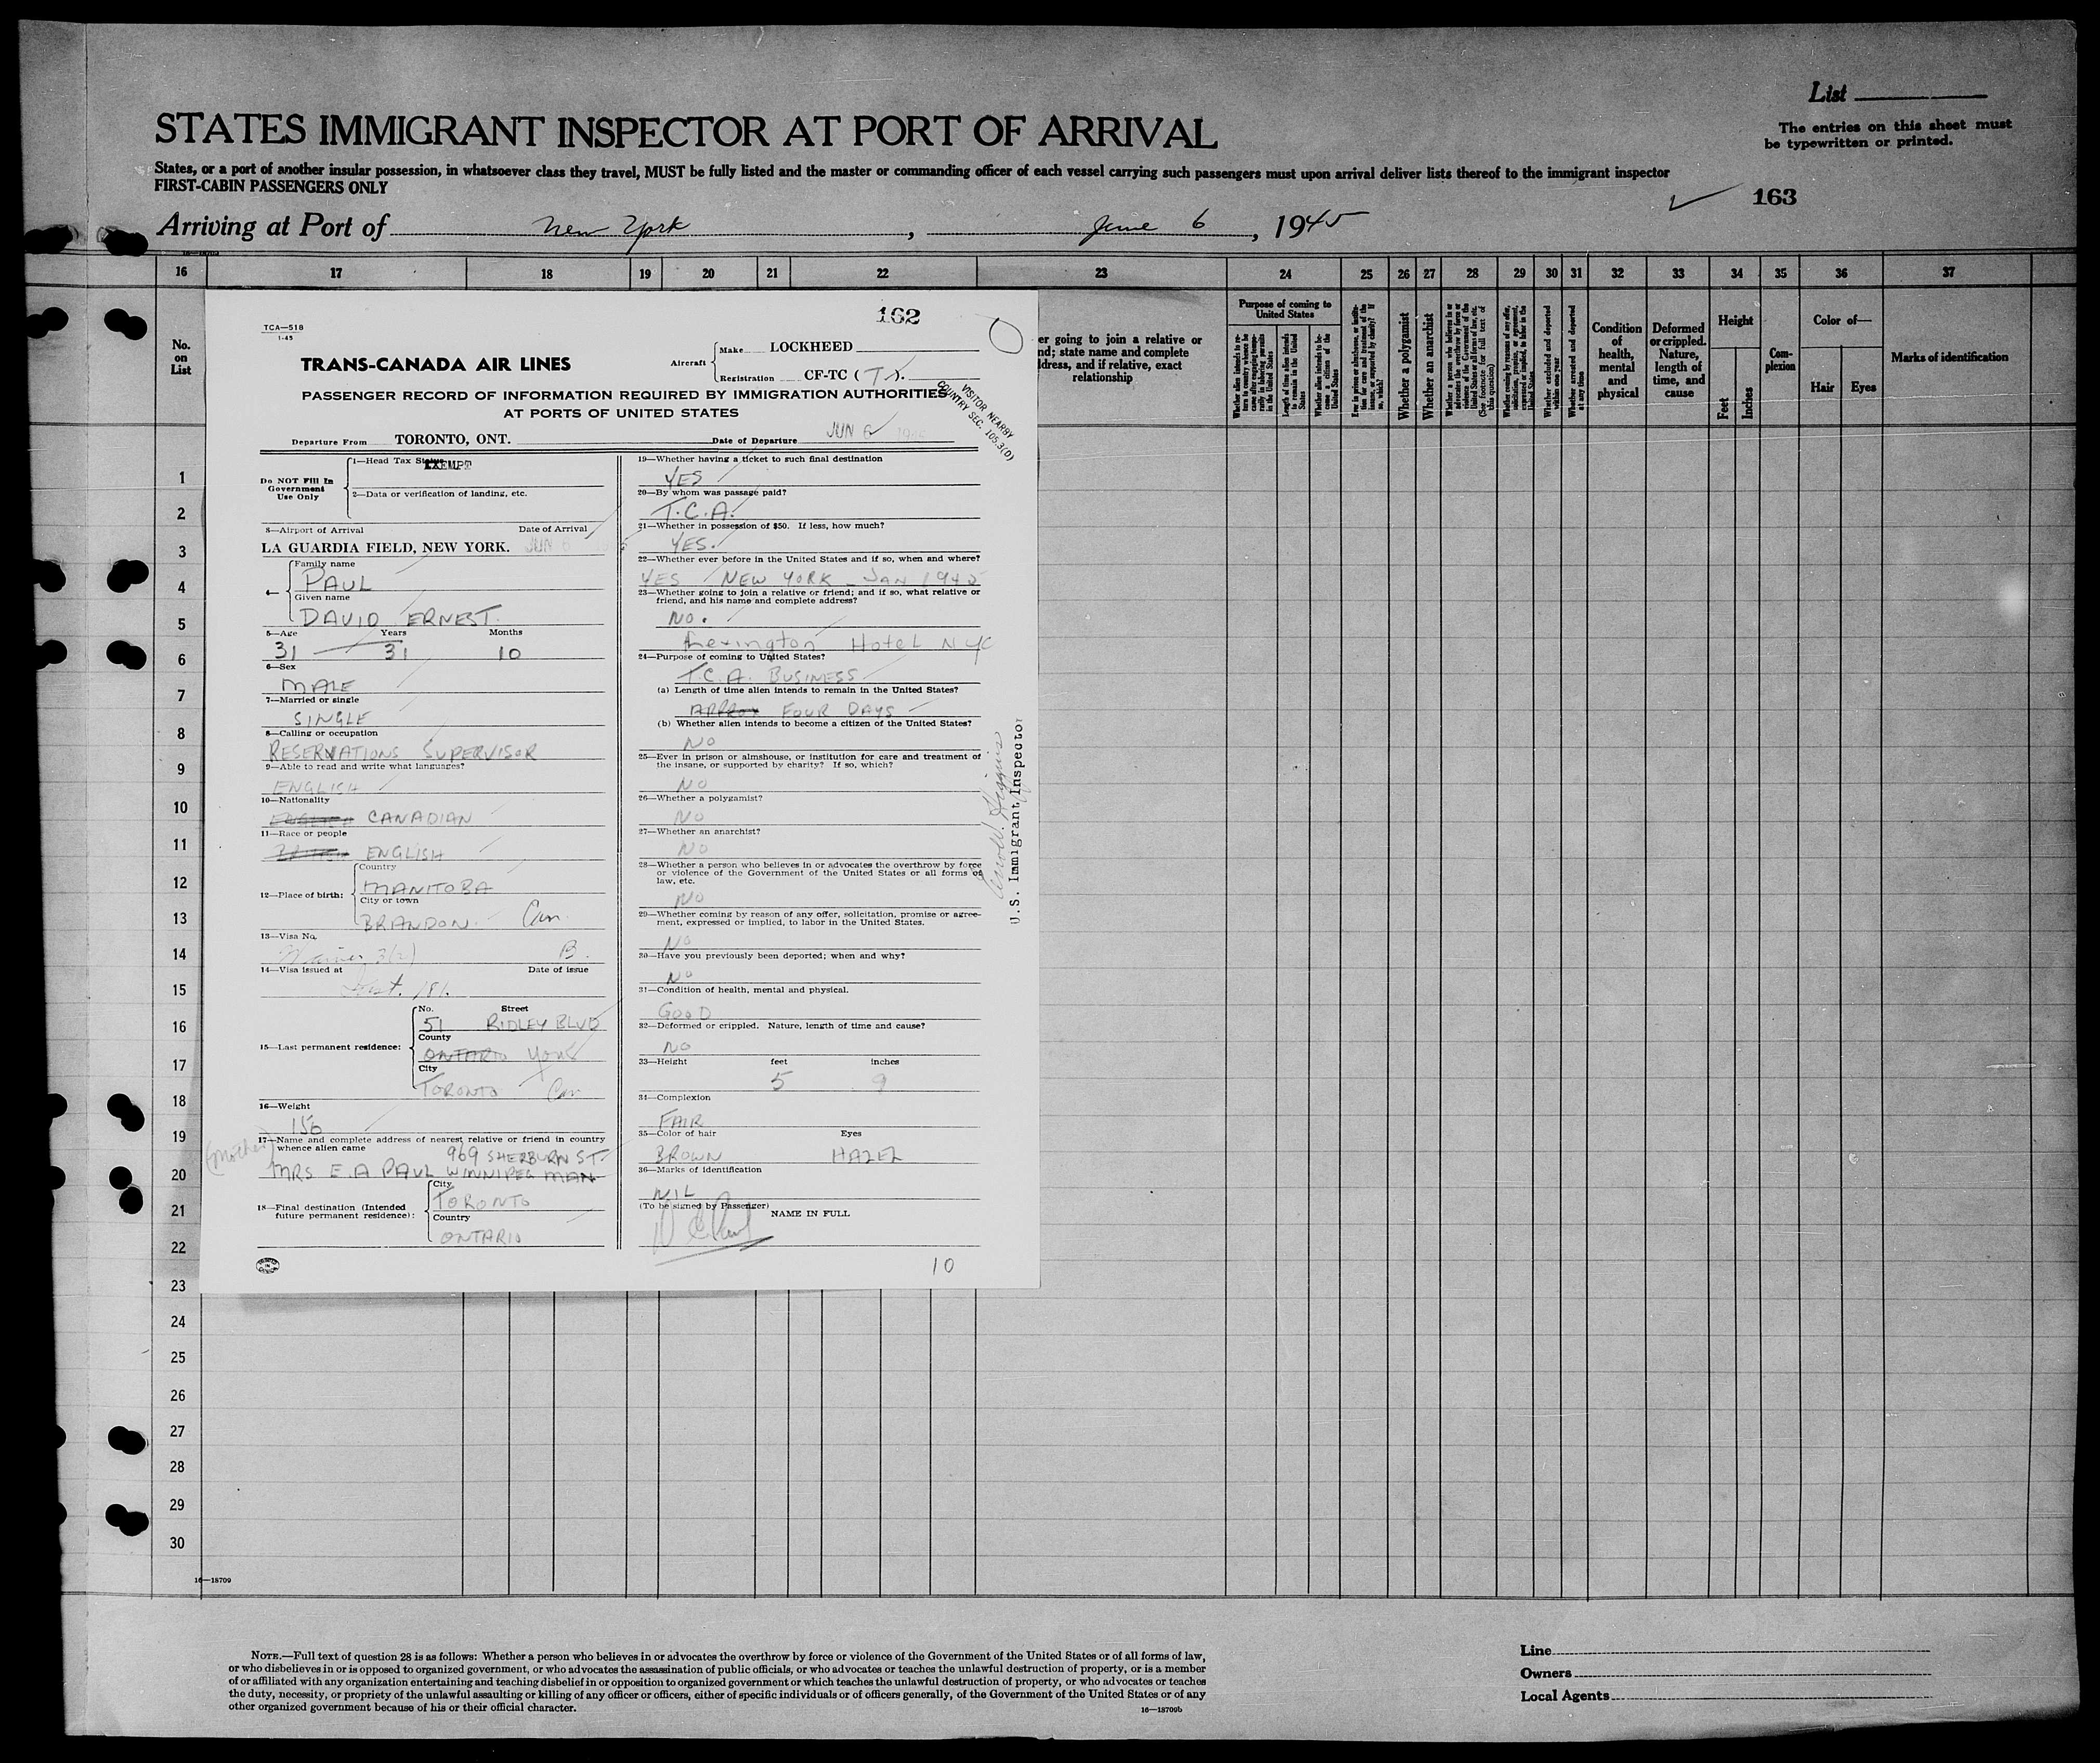 List
The entries on this sheet must
be typewritten or printed.
STATES IMMIGRANT INSPECTOR AT PORT OF ARRIVAL
States, or a port of another insular possession, in whatsoever class they travel, MUST be fully listed and the master or commanding officer of each vessel carrying such passengers must upon arrival deliver lists thereof to the immigrant inspector
FIRST-CABIN PASSENGERS ONLY
163
Arriving at Port of New York, June 6, 1945
16 17 18 19 20 21 22 23 24 25 26 27 28 29 30 31 32 33 34 35 36 37
No.
on
List
er going to join a relative or
nd; state name and complete
ldress, and if relative, exact
relationship
Purpose of coming to
United States
Whether a polygamist
Whether an anarchist
Whether excluded and deported
within one year
Whether arrested and deported
at any time
Condition
of
health,
mental
and
physical
Deformed
or crippled.
Nature,
length of
time, and
cause
Height
Feet
Inches
Com-
plexion
Color of—
Hair Eyes
Marks of identification
162
TCA—518
1-45
TRANS-CANADA AIR LINES
Aircraft
Make LOCKHEED
Registration CF-TC (
PASSENGER RECORD OF INFORMATION REQUIRED BY IMMIGRATION AUTHORITIES
AT PORTS OF UNITED STATES
VISITOR NEARBY
COUNTRY SEC. 105.3(D)
Departure From TORONTO, ONT. Date of Departure JUN 6
Do NOT Fill In
Government
Use Only
1—Head Tax Status
EXEMPT
2—Data or verification of landing, etc.
3—Airport of Arrival Date of Arrival
LA GUARDIA FIELD, NEW YORK. JUN 6
4—
Family name
PAUL
Given name
DAVID ERNEST
5—Age Years Months
31 31 10
6—Sex
MALE
7—Married or single
SINGLE
8—Calling or occupation
RESERVATIONS SUPERVISOR
9—Able to read and write what languages?
ENGLISH
10—Nationality
CANADIAN
11—Race or people
ENGLISH
12—Place of birth:
Country
MANITOBA
City or town
BRANDON. Can.
13—Visa No.
B.
14—Visa issued at Date of issue
181.
15—Last permanent residence:
No. Street
51 RIDLEY BLVD
County
ONTARIO York
City
TORONTO Can
16—Weight
156
17—Name and complete address of nearest relative or friend in country
whence alien came
(Mother)
969 SHERBURN ST.
MRS E. A PAUL WINNIPEG MAN
18—Final destination (Intended
future permanent residence):
City
TORONTO
Country
ONTARIO
19—Whether having a ticket to such final destination
YES
20—By whom was passage paid?
T.C.A.
21—Whether in possession of $50. If less, how much?
YES.
22—Whether ever before in the United States and if so, when and where?
YES NEW YORK - JAN 1945
23—Whether going to join a relative or friend; and if so, what relative or
friend, and his name and complete address?
NO.
Lexington Hotel NYC
24—Purpose of coming to United States?
T.C.A. BUSINESS
(a) Length of time alien intends to remain in the United States?
APPROX FOUR DAYS
(b) Whether alien intends to become a citizen of the United States?
NO
25—Ever in prison or almshouse, or institution for care and treatment of
the insane, or supported by charity? If so, which?
NO
26—Whether a polygamist?
NO
27—Whether an anarchist?
NO
28—Whether a person who believes in or advocates the overthrow by force
or violence of the Government of the United States or all forms of
law, etc.
NO
29—Whether coming by reason of any offer, solicitation, promise or agree-
ment, expressed or implied, to labor in the United States.
NO
30—Have you previously been deported; when and why?
NO
31—Condition of health, mental and physical.
GOOD
32—Deformed or crippled. Nature, length of time and cause?
NO
33—Height feet inches
5 9
34—Complexion
FAIR
35—Color of hair Eyes
BROWN HAZEL
36—Marks of identification
NIL
(To be signed by Passenger) NAME IN FULL
D E Paul
10
U.S. Immigrant Inspector
1
2
3
4
5
6
7
8
9
10
11
12
13
14
15
16
17
18
19
20
21
22
23
24
25
26
27
28
29
30
16—18709
NOTE.—Full text of question 28 is as follows: Whether a person who believes in or advocates the overthrow by force or violence of the Government of the United States or of all forms of law,
or who disbelieves in or is opposed to organized government, or who advocates the assassination of public officials, or who advocates or teaches the unlawful destruction of property, or is a member
of or affiliated with any organization entertaining and teaching disbelief in or opposition to organized government or which teaches the unlawful destruction of property, or who advocates or teaches
the duty, necessity, or propriety of the unlawful assaulting or killing of any officer or officers, either of specific individuals or of officers generally, of the Government of the United States or of any
other organized government because of his or their official character.
16—18709b
Line
Owners
Local Agents